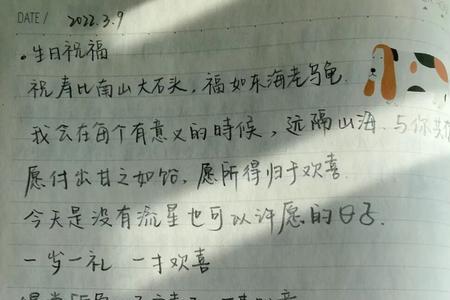 DATE/ 2022.3.9
•生日祝福
祝寿比南山大石头，福如东海老乌龟.
我会在每个有意义的時候，远隔山海.与你共
愿付出甘之如饴，愿所得归于欢喜.
今天是没有流星也可以许愿的日子.
一岁一礼 一寸欢喜